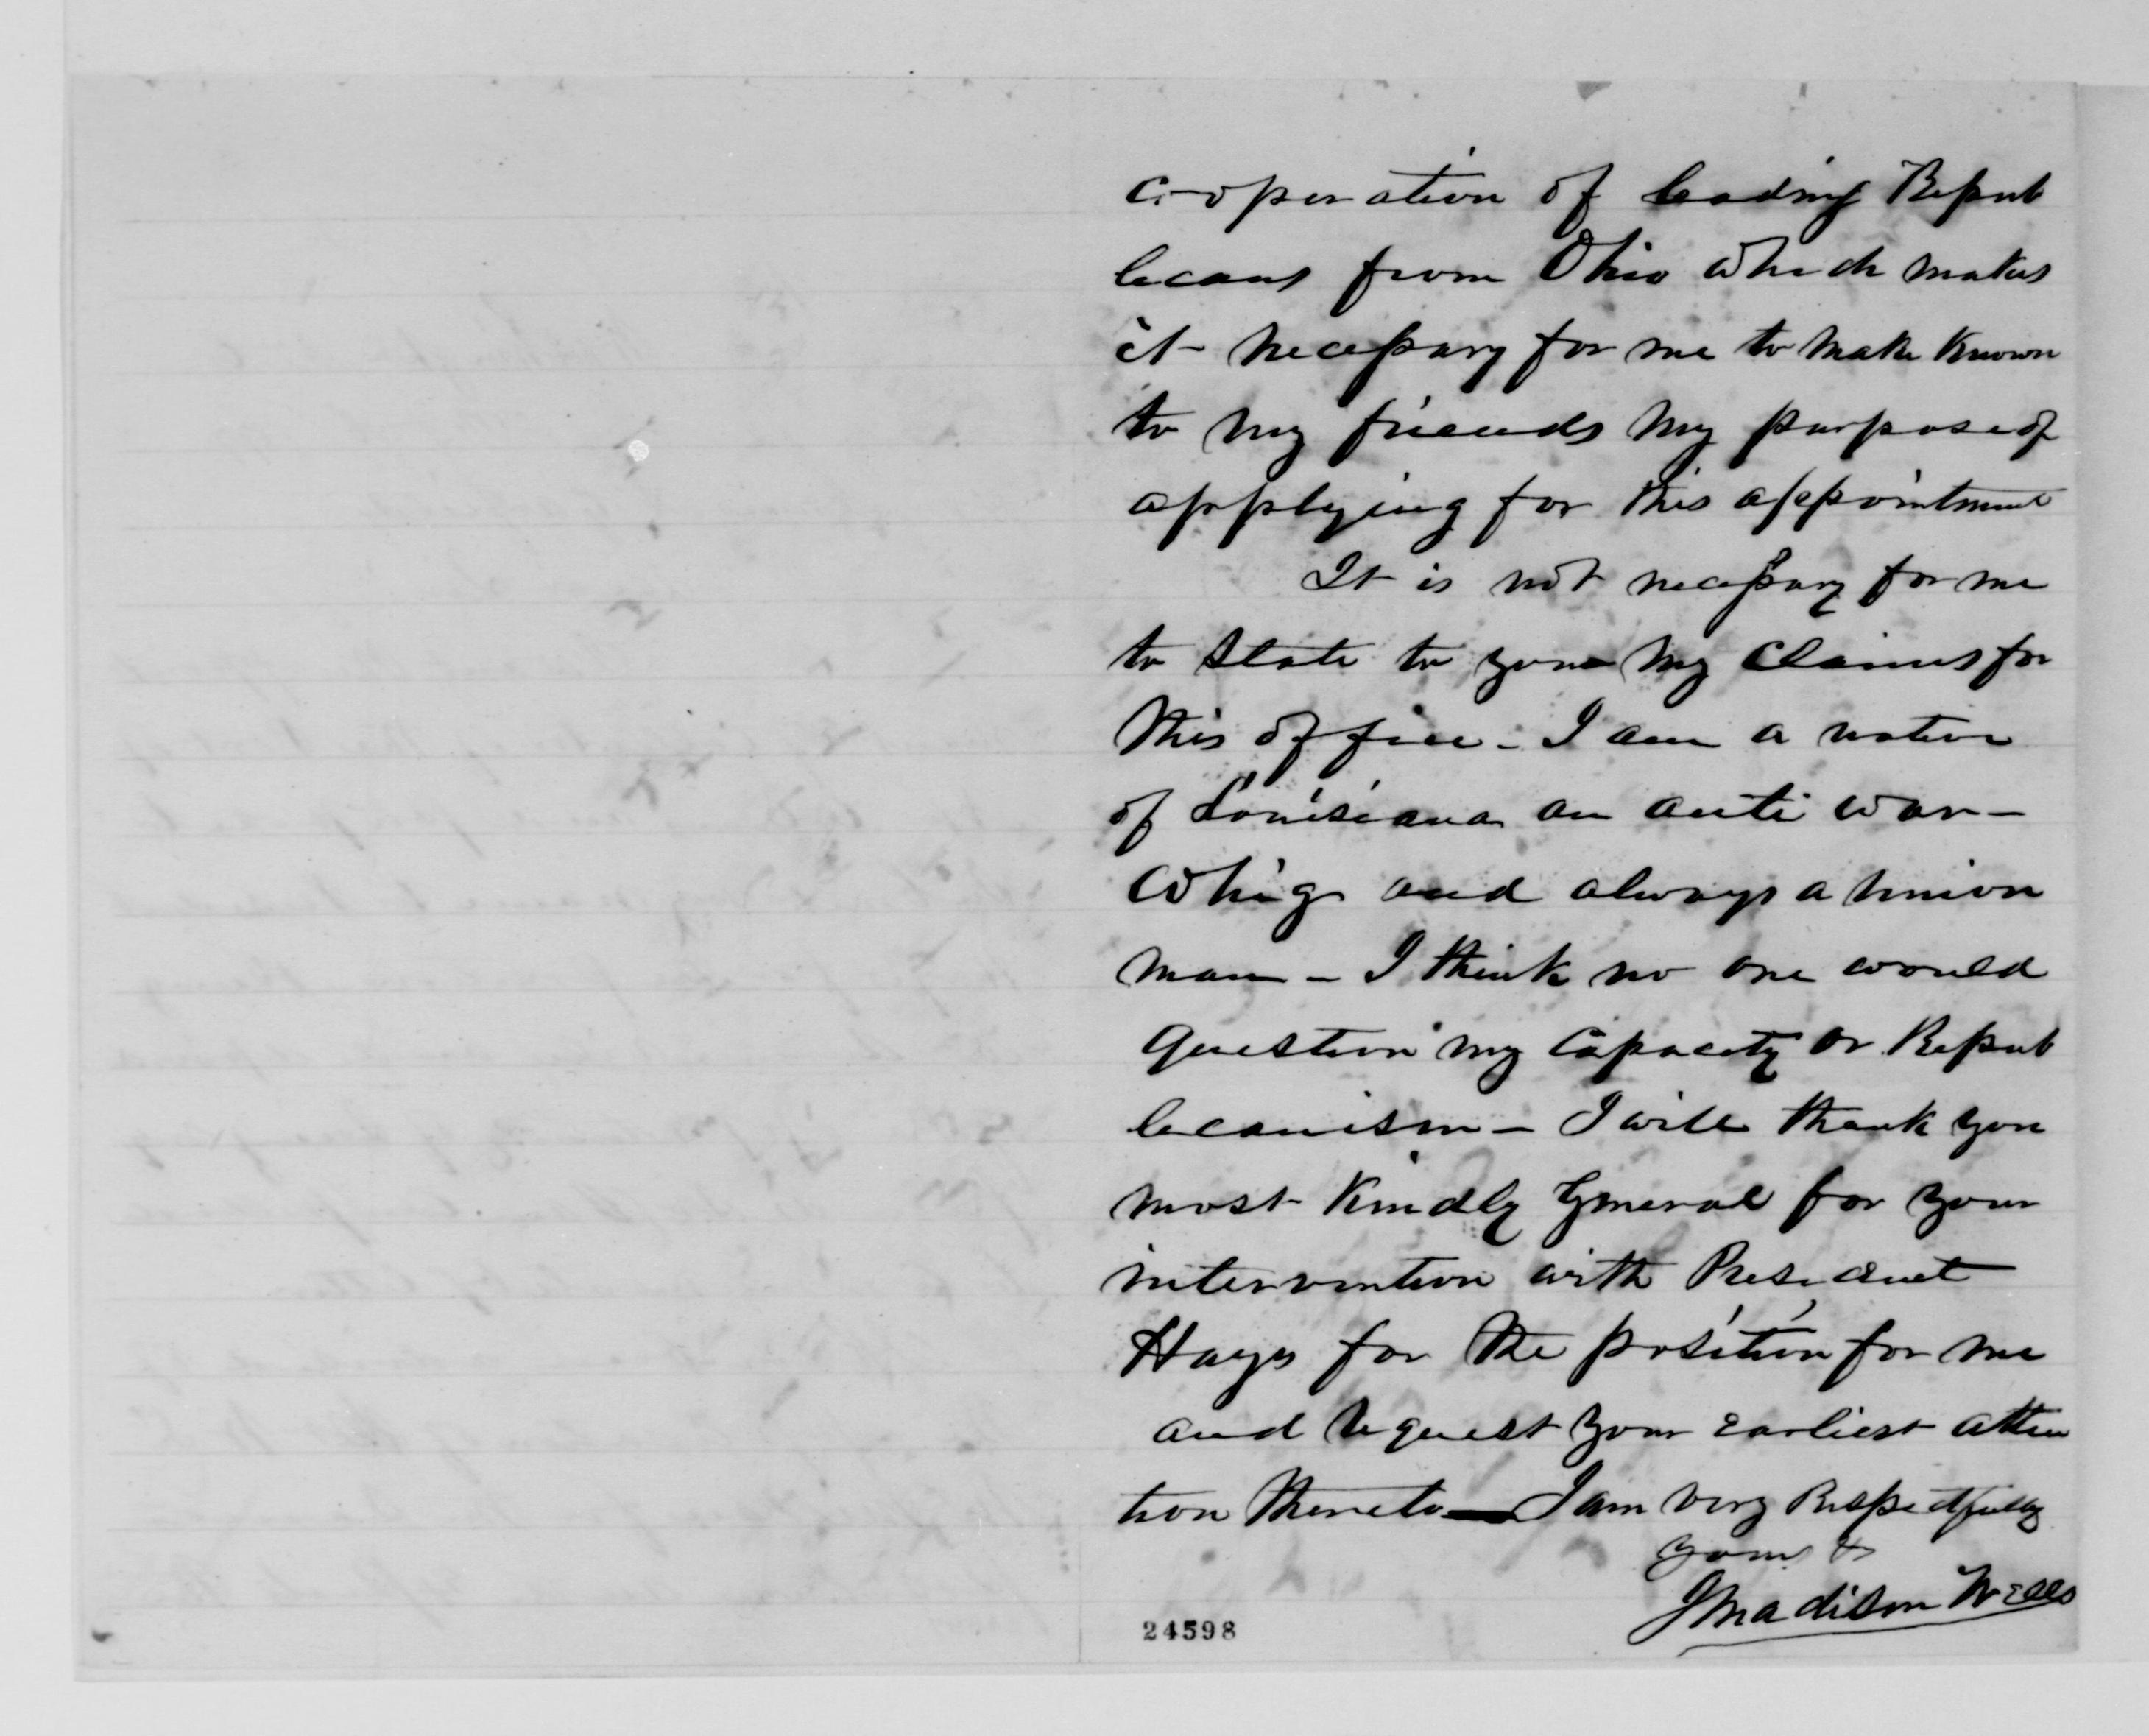 co-operation of leading Repub
licans from Ohio which makes
it necessary for me to make known
to my friends my purpose of
applying for this appointment
It is not necessary for me
to state to you my claims for
this office - I am a native
of Louisiana an anti war -
Whig and always a union
man - I think no one would
question my capacity or Repub
licanism - I will thank you
most kindly General for your
intervention with President
Hays for the position for me
and request your earliest atten
tion thereto — I am very Respectfully
yours &
J Madison Wells
24598